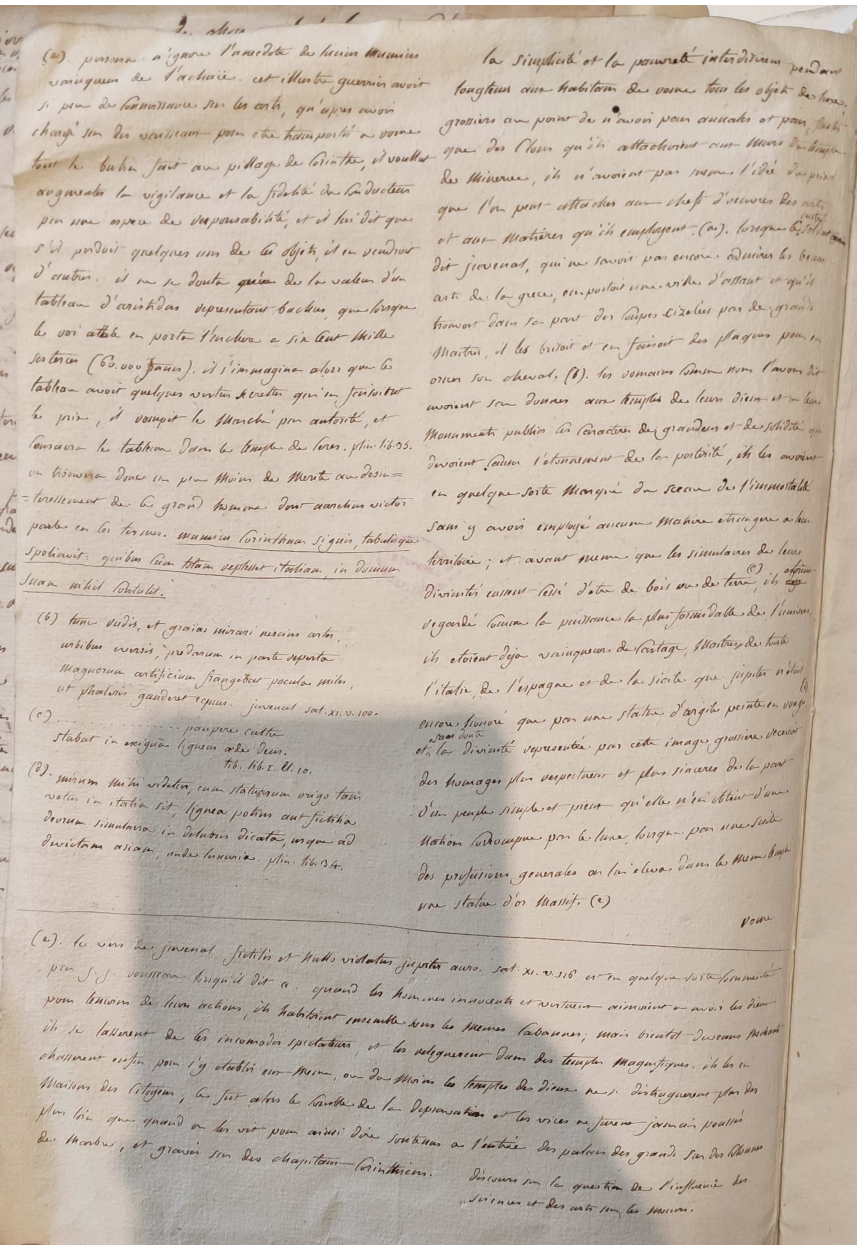 (a) personne n'ignore l'anecdote de lucius mumius
vainqueur de l'achaie. cet illustre guerrier avoit
si peu de connoissance sur les arts, qu'apres avoir
chargé sur des vaisseaux pour etre transporté a rome
tout le butin fait au pillage de Corinthe, il voullut
augmenter la vigilance et la fidelité du Conducteur
par une espece de responsabilité, et il lui dit que
s'il perdoit quelques uns de ces objets, il en rendroit
d'autres. il ne se douta guère de la valeur d'un
tableau d'aristidas representant bachus, que lorsque
le roi attale en porta l'enchere a six Cent Mille
sesterces (60.000 francs). il s'immagina alors que ce
tableau avoit quelques vertus secrettes qui en faisoient
le prix, il rompit le Marché par autorité, et
Consacra le tableau dans le temple de Ceres. plin. lib. 35.
on trouvera donc un peu Moins de Merite au desin=
=teressement de ce grand homme dont aurelius victor
parle en ces termes. mumius Corinthum signis, tabulisque
spoliavit: quibus Cum totam replesset italiam, in domum
suam nihil Contulit.
(b) tunc rudis, et graias mirari nescius artes,
urbibus eversis, prædarum in parte reperta
magnorum artificium frangebat pocula miles,
ut phaleris gauderet equus. juvenal sat. XI. v. 100.
(c) .................... paupere cultu
stabat in exigua ligneus æde deus.
tib. lib. I. El. 10.
(d). mirum mihi videtur, cum statuarum origo tam
vetus in italia sit, lignea potius aut fictilia
deorum simulacra in delubris dicata, usque ad
devictam asiam, unde luxuria. plin. lib. 34.
la simplicité et la pauvreté interdisirent pendant
longtems aux habitans de rome tous les objets de luxe,
grossiers au point de n'avoir pour annales et pour fastes
que des Clous qu'ils attachoient aux Murs du temple
de Minerve, ils n'avoient pas meme l'idée du prix
que l'on peut attacher aux chefs d'oeuvres des arts
et aux Matières qu'ils employent. (a). lorsque le soldat
dit juvenal, qui ne savoit pas encore admirer les beaux
arts de la grece, emportoit une ville d'assaut et qu'il
trouvoit dans sa part des Coupes cizelées par de grands
Maitres, il les brisoit et en faisoit des plaques pour en
orner son cheval. (b). les romains comme nous l'avons dit
avoient sçu donner aux temples de leurs dieux et a leurs
Monuments publics ces caractères de grandeur et de solidité qui
devoient causer l'etonnement de la posterité, ils les avoient
en quelque sorte Marqué du sceau de l'immortalité
sans y avoir employé aucune Matiere etrangere a leur
territoire; et avant meme que les simulacres de leurs
divinités eussent cessé d'etre de bois ou de terre, (c) ils
regardé comme la puissance la plus formidable de l'univers.
ils etoient deja vainqueurs de Cartage, Maitres de toute
l'italie, de l'espagne et de la sicile que jupiter n'etoit
encore honoré que par une statue d'argile peinte en rouge, (d)
et sans doute la divinité representée par cette image grossiere recevoit
des hommages plus respectueux et plus sinceres de la part
d'un peuple simple et pieux qu'elle n'en obtint d'une
Nation corrompue par le luxe, lorsque par une suite
des profusions generales on lui eleva dans le meme temple
une statue d'or Massif. (e)
rome
(e). le vers de juvenal fictilis et Nullo violatus jupiter auro. sat. XI. v. 116 est en quelque sorte Commenté
par j. j. rousseau lorsqu'il dit «. quand les hommes innocents et vertueux aimoient a avoir les dieux
pour temoins de leurs actions, ils habitoient ensemble sous les Memes Cabannes; mais bientot devenus Mechants
ils se lasserent de ces incomodes spectateurs, et les releguerent dans des temples Magnifiques. ils les en
chasserent enfin pour s'y etablir eux Meme, ou du Moins les temples des dieux ne se distinguerent plus des
Maisons des Citoyens, ce fut alors le Comble de la Depravation et les vices ne furent jamais poussés
plus loin que quand on les vit pour ainsi dire soutenus a l'entrée des palais des grands sur des Colonnes
de Marbre, et gravés sur des chapitaux Corinthiens.
discours sur la question de l'influence des
sciences et des arts sur les moeurs.